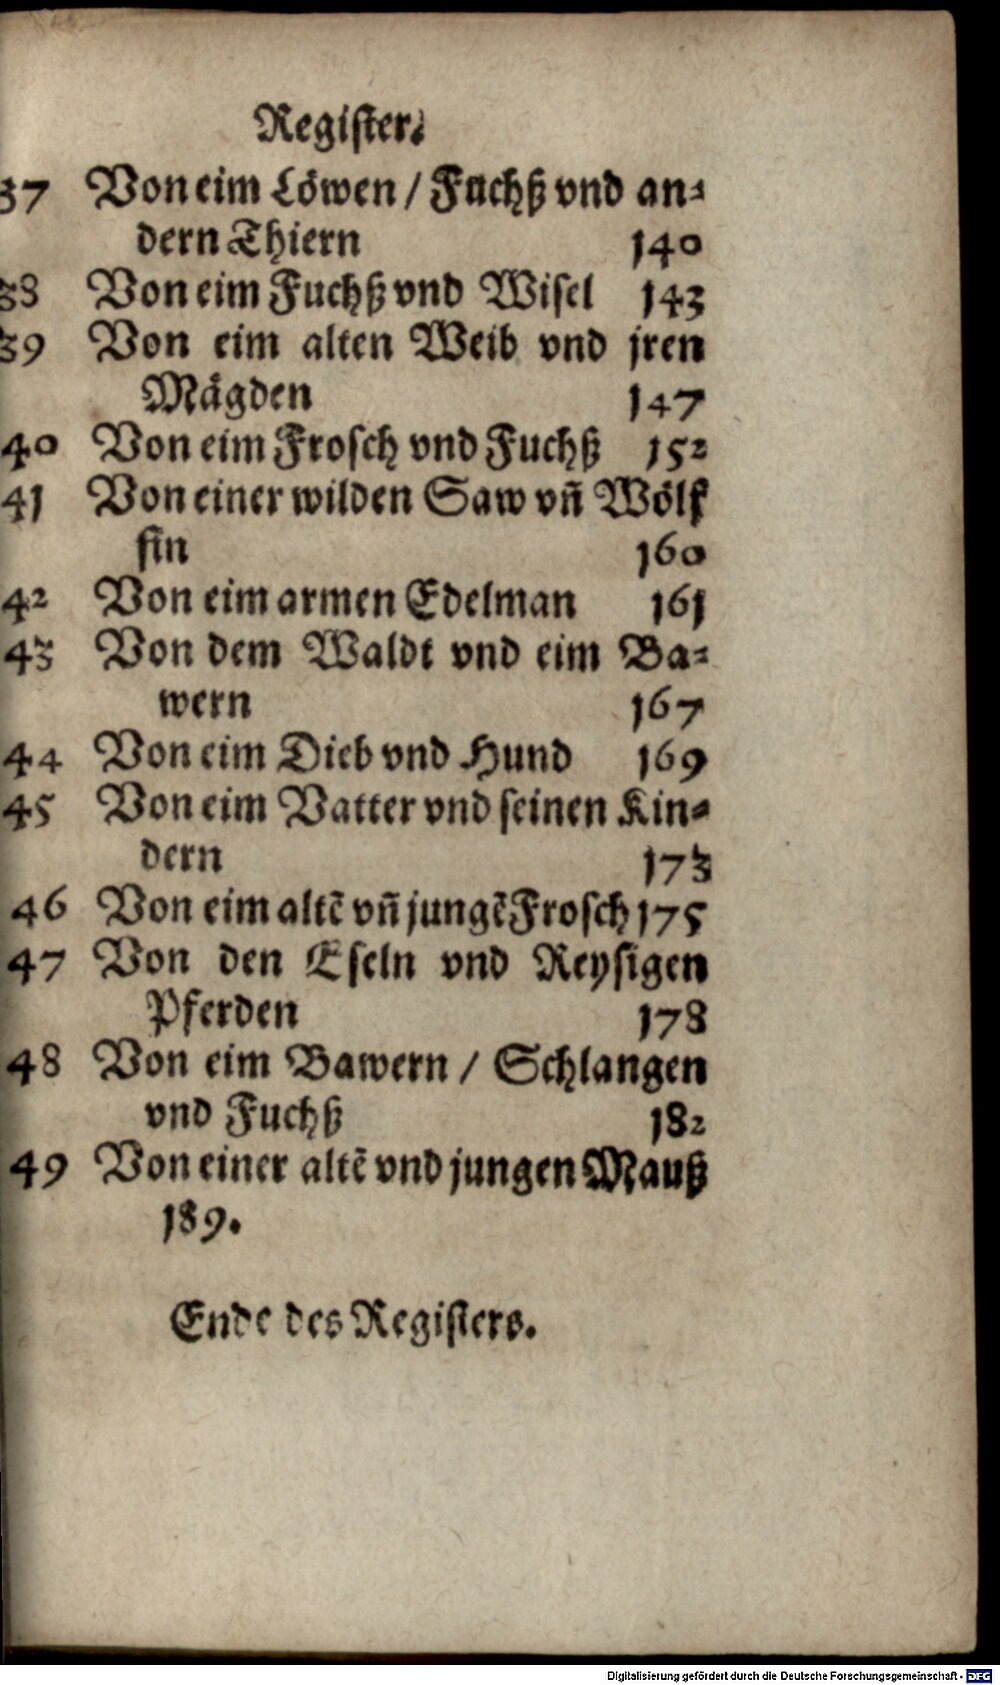 Register.
37 Von eim Löwen / Fuchß vnd an⸗
dern Thiern 140
38 Von eim Fuchß vnd Wisel 143
39 Von eim alten Weib vnd jren
Mägden 147
40 Von eim Frosch vnd Fuchß 152
41 Von einer wilden Saw vn̄ Wölf
fin 160
42 Von eim armen Edelman 161
43 Von dem Waldt vnd eim Ba⸗
wern 167
44 Von eim Dieb vnd Hund 169
45 Von eim Vatter vnd seinen Kin⸗
dern 173
46 Von eim altē vn̄ jungē Frosch 175
47 Von den Eseln vnd Reysigen
Pferden 178
48 Von eim Bawern / Schlangen
vnd Fuchß 182
49 Von einer altē vnd jungen Mauß
189.
Ende des Registers.
Digitalisierung gefördert durch die Deutsche Forschungsgemeinschaft - DFG